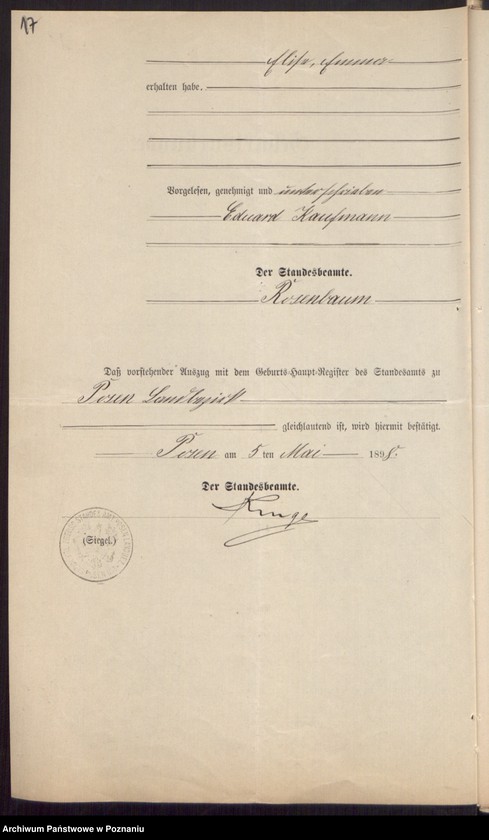 17
Elise, Emma
erhalten habe.
Vorgelesen, genehmigt und unterschrieben
Eduard Kaufmann
Der Standesbeamte.
Rosenbaum
Daß vorstehender Auszug mit dem Geburts-Haupt-Register des Standesamts zu
Posen Landbezirk
gleichlautend ist, wird hiermit bestätigt.
Posen am 5 ten Mai 1898.
Der Standesbeamte.
(Siegel.)
Archiwum Państwowe w Poznaniu